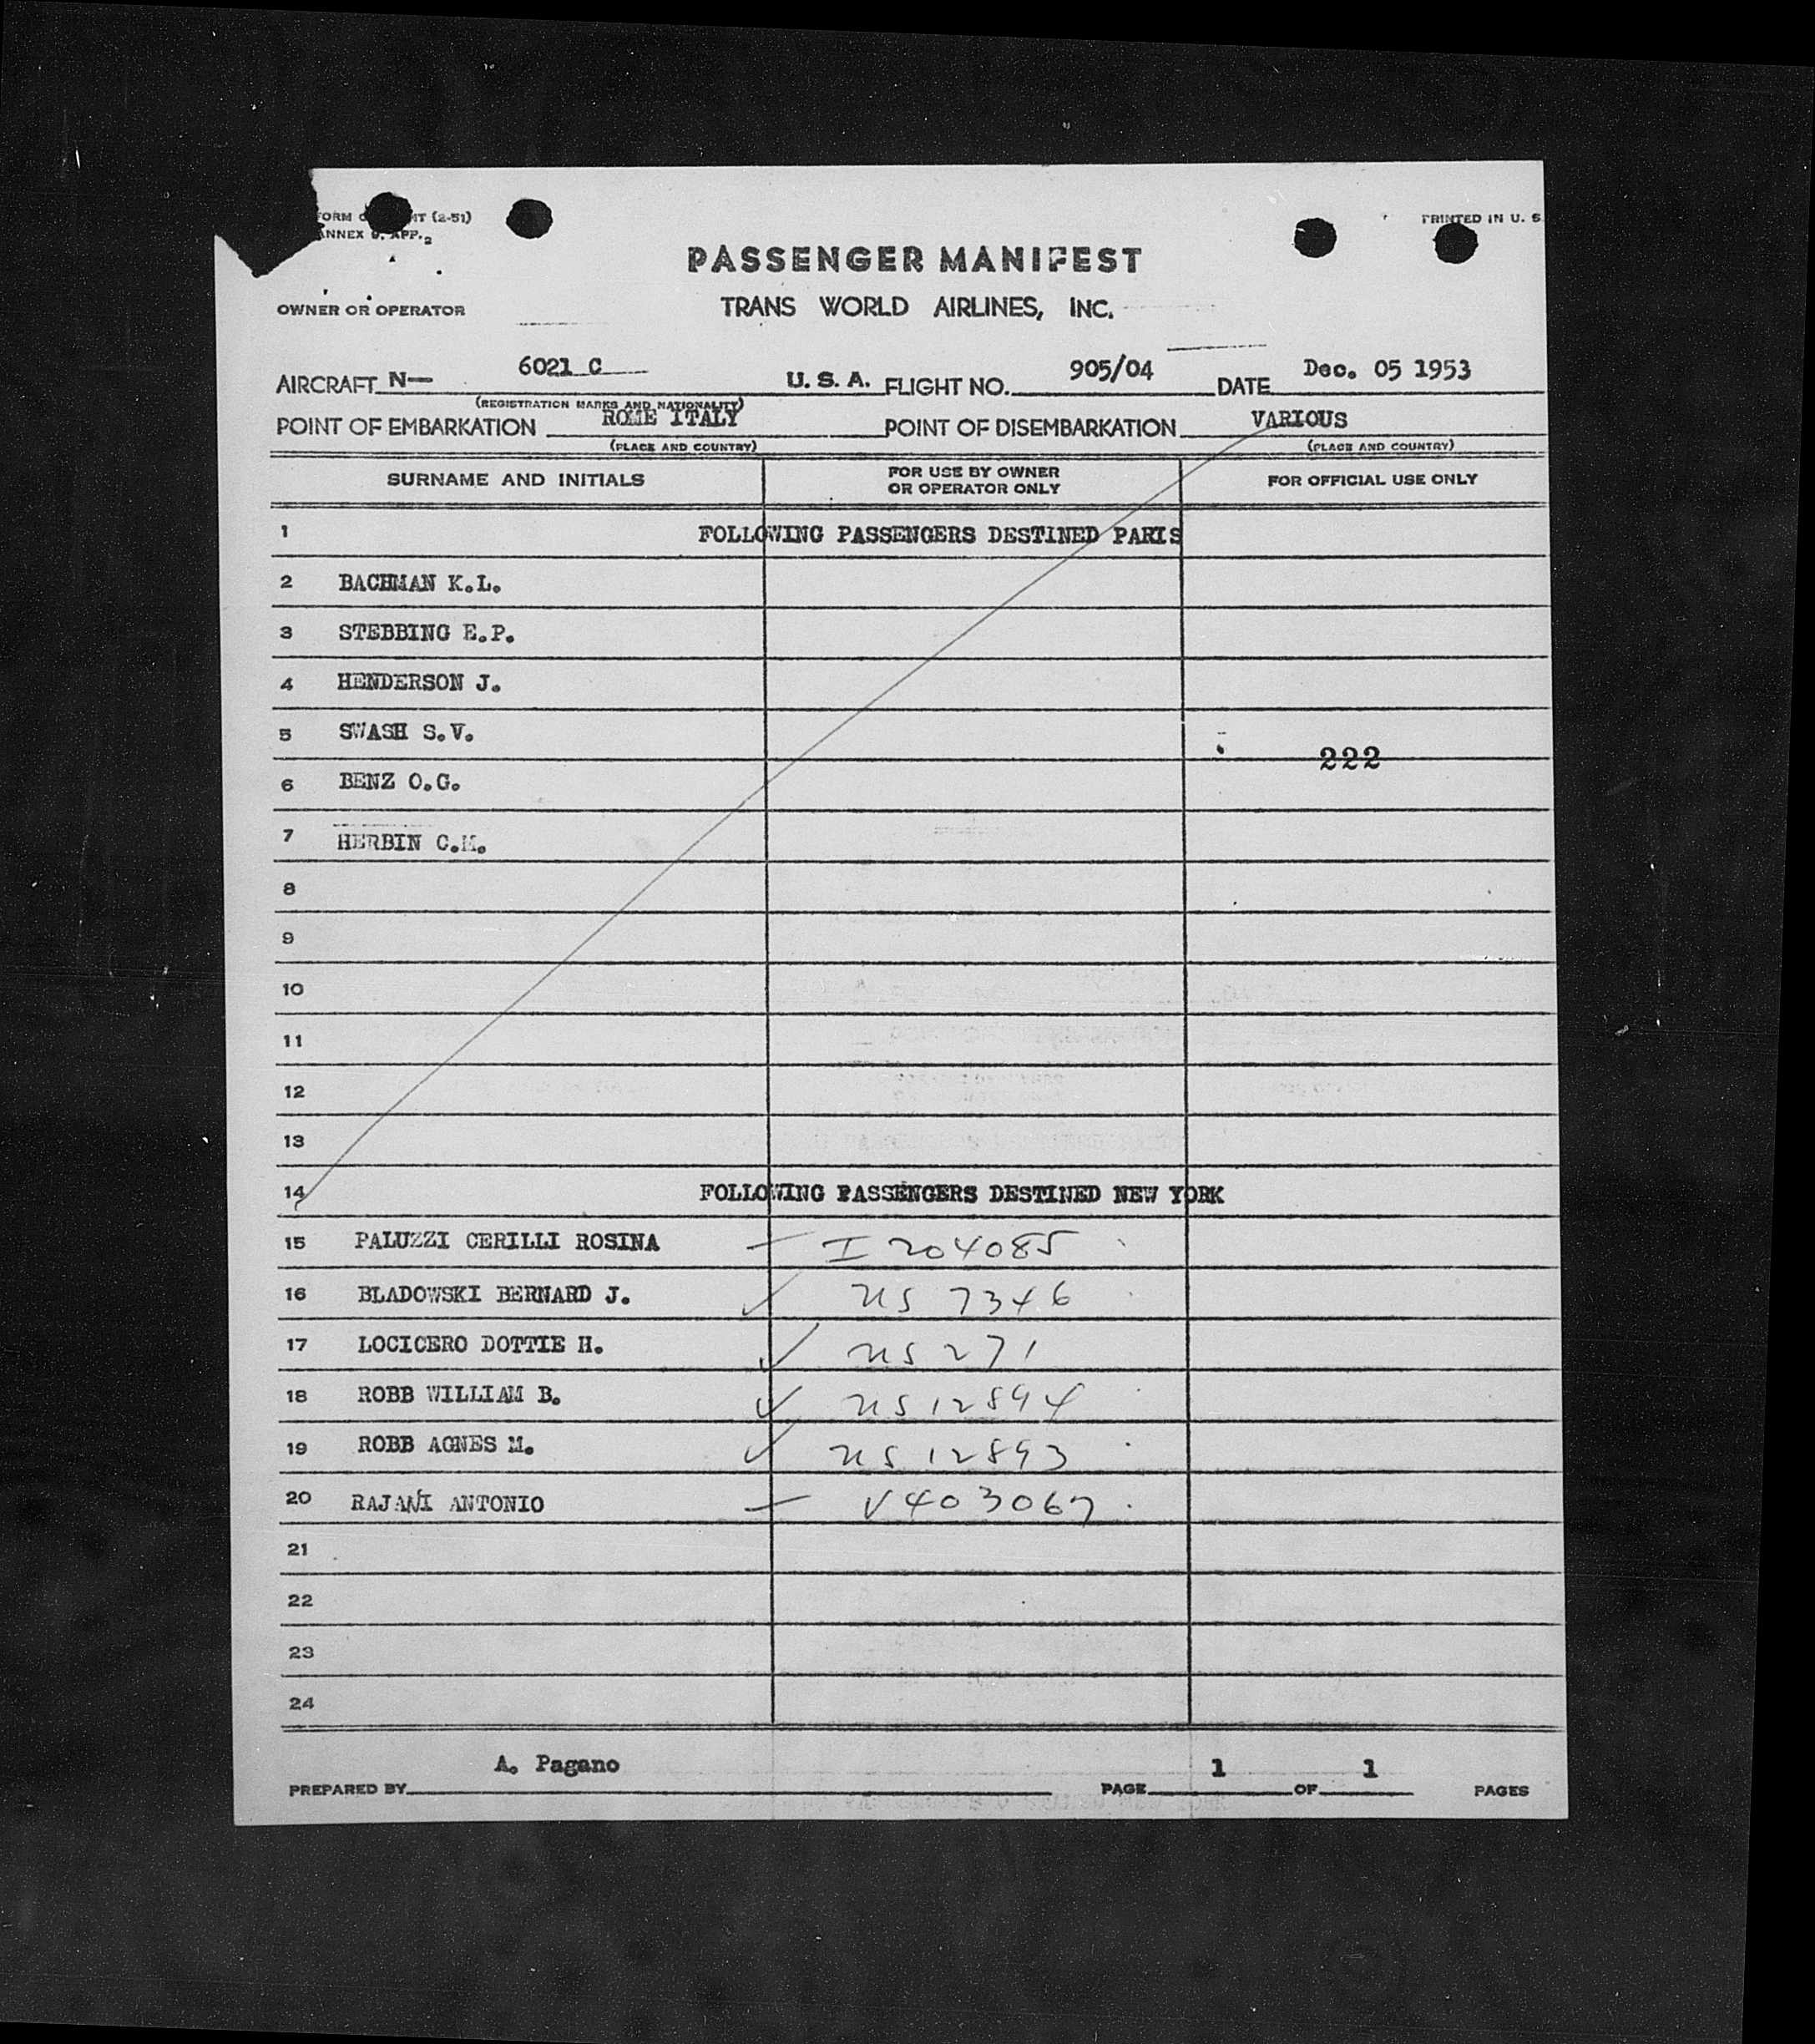 FORM MT (2-51)
ANNEX 9, APP. 2
PRINTED IN U. S.
PASSENGER MANIFEST
OWNER OR OPERATOR TRANS WORLD AIRLINES, INC.
AIRCRAFT N— 6021 C U. S. A. FLIGHT NO. 905/04 DATE Dec. 05 1953
(REGISTRATION MARKS AND NATIONALITY)
POINT OF EMBARKATION ROME ITALY POINT OF DISEMBARKATION VARIOUS
(PLACE AND COUNTRY) (PLACE AND COUNTRY)
SURNAME AND INITIALS FOR USE BY OWNER OR OPERATOR ONLY FOR OFFICIAL USE ONLY
1 FOLLOWING PASSENGERS DESTINED PARIS
2 BACHMAN K.L.
3 STEBBING E.P.
4 HENDERSON J.
5 SWASH S.V.
222
6 BENZ O.G.
7 HERBIN C.M.
8
9
10
11
12
13
14 FOLLOWING PASSENGERS DESTINED NEW YORK
15 PALUZZI CERILLI ROSINA — I 204085
16 BLADOWSKI BERNARD J. ✓ US 7346
17 LOCICERO DOTTIE H. ✓ US 271
18 ROBB WILLIAM B. ✓ US 12894
19 ROBB AGNES M. ✓ US 12893
20 RAJANI ANTONIO — V403067
21
22
23
24
PREPARED BY A. Pagano PAGE 1 OF 1 PAGES